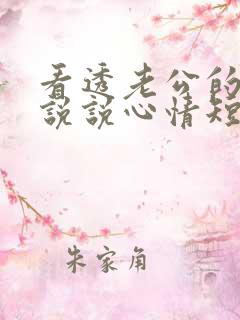 看透老公的
说说心情短
朱家角